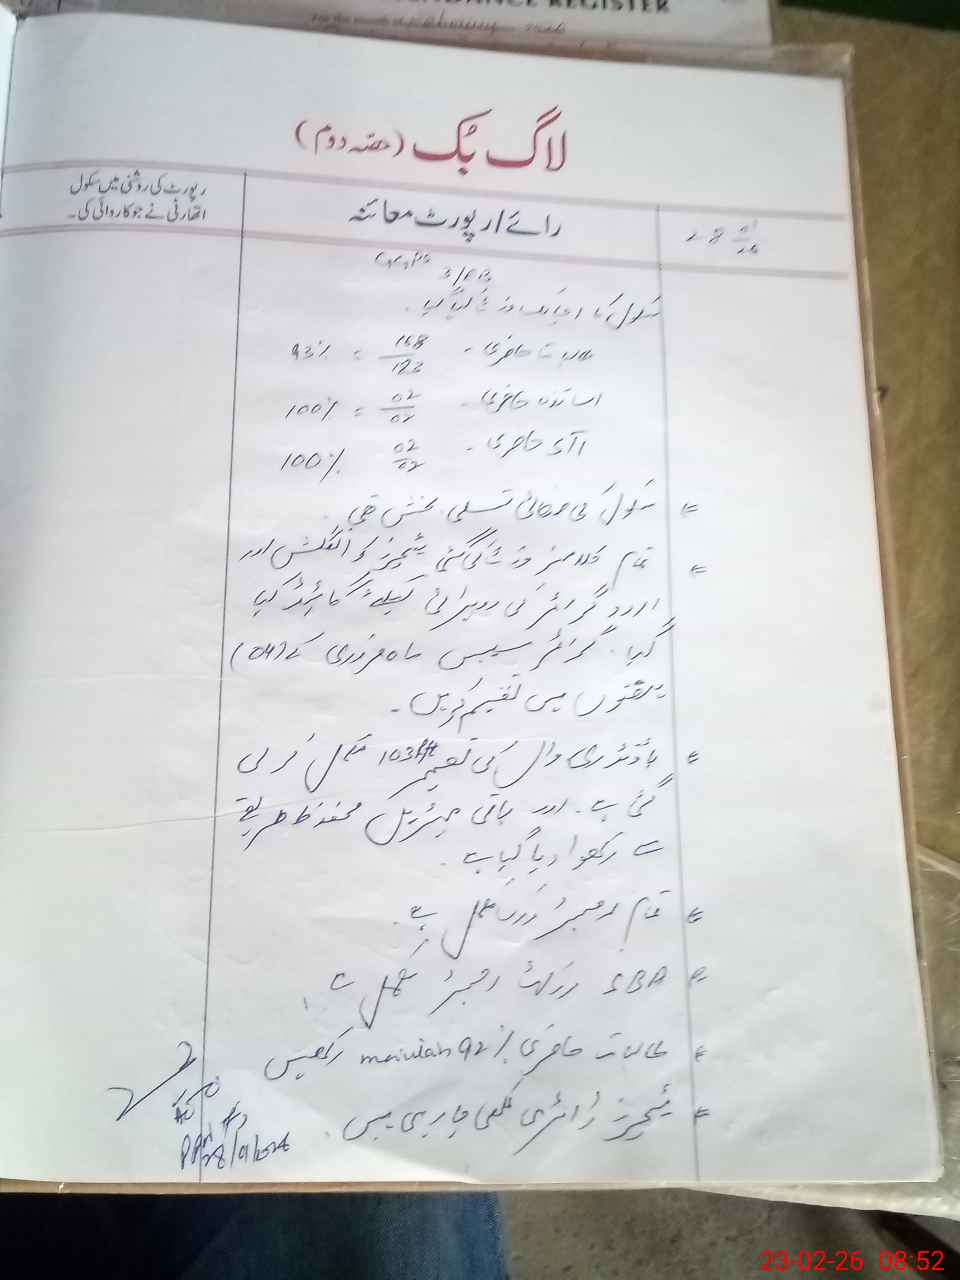 ATTENDANCE REGISTER
For the month 2026
لاگ بُک (حصہ دوم)
رائے / رپورٹ معائنہ
رپورٹ کی روشنی میں سکول
اتھارٹی نے جو کاروائی کی۔
GGPS 3/
سکول کا اچانک وزٹ کیا گیا۔
طالبات حاضری - 168/123 = 93%
اساتذہ حاضری - 02/02 = 100%
حاضری - 02/02 100%
= سکول کی صفائی تسلی بخش تھی۔
= تمام کلاسز وزٹ کی گئی ٹیچرز کو انگلش اور
اردو گرائمر کی دہرائی کیلئے گائیڈ کیا
گیا۔ گرائمر سلیبس ماہ فروری کے (04)
ہفتوں میں تقسیم کریں۔
= باؤنڈری وال کی تعمیر 103ft مکمل کر لی
گئی ہے۔ اور باقی میٹریل محفوظ طریقے
سے رکھوا دیا گیا ہے۔
= تمام رجسٹر مکمل ہے۔
= SBA رزلٹ رجسٹر مکمل ہے
= طالبات حاضری 92% رکھیں
= ٹیچرز ڈائری لکھی جا رہی ہیں۔
28/1/2026
23-02-26 08:52